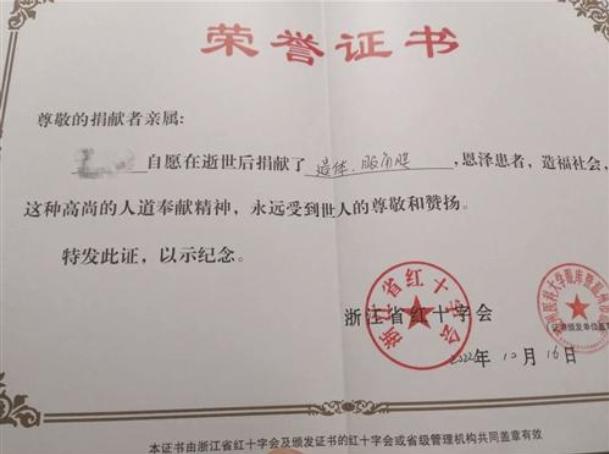 荣誉证书
尊敬的捐献者亲属:
自愿在逝世后捐献了 遗体、眼角膜 ,恩泽患者,造福社会,
这种高尚的人道奉献精神,永远受到世人的尊敬和赞扬。
特发此证,以示纪念。
浙江省红十字会
浙江省红十字会
证书颁发单位盖
2022年10月16日
本证书由浙江省红十字会及颁发证书的红十字会或省级管理机构共同盖章有效